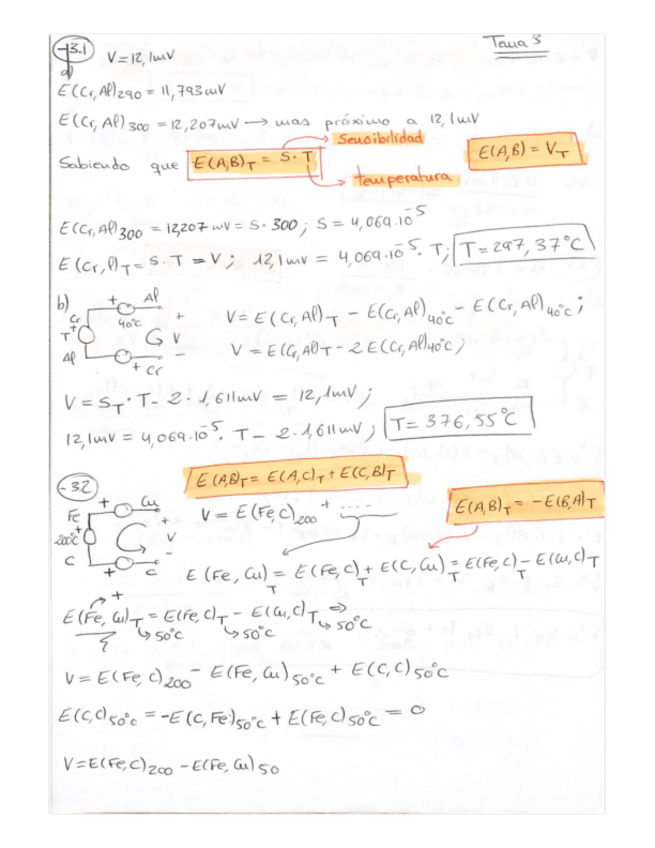 Tema 3
-3.1 V=12,1mV
a)
E(Cr,Al)290 = 11,793mV
E(Cr,Al)300 = 12,207mV → mas próximo a 12,1mV
Sensibilidad
Sabiendo que E(A,B)T = S·T E(A,B) = VT
temperatura
E(Cr,Al)300 = 12,207 mV = S·300; S = 4,069·10^-5
E(Cr,Al)T = S·T = V; 12,1mV = 4,069·10^-5·T; T=297,37°C
b) + Al
Cr 40°C +
T + V
Al -
+ Cr
V = E(Cr,Al)T - E(Cr,Al)40°C - E(Cr,Al)40°C;
V = E(Cr,Al)T - 2E(Cr,Al)40°C;
V = ST·T - 2·1,611mV = 12,1mV;
12,1mV = 4,069·10^-5·T - 2·1,611mV; T= 376,55°C
-3.2 E(A,B)T = E(A,C)T + E(C,B)T
E(A,B)T = -E(B,A)T
Fe + Cu
200°C + + V -
C + C
V = E(Fe,C)200 + ......
E(Fe,Cu)T = E(Fe,C)T + E(C,Cu)T = E(Fe,C)T - E(Cu,C)T
+
E(Fe,Cu)T = E(Fe,C)T - E(Cu,C)T ⇒
↳50°C ↳50°C ↳50°C
V = E(Fe,C)200 - E(Fe,Cu)50°C + E(C,C)50°C
E(C,C)50°C = -E(C,Fe)50°C + E(Fe,C)50°C = 0
V=E(Fe,C)200 - E(Fe,Cu)50